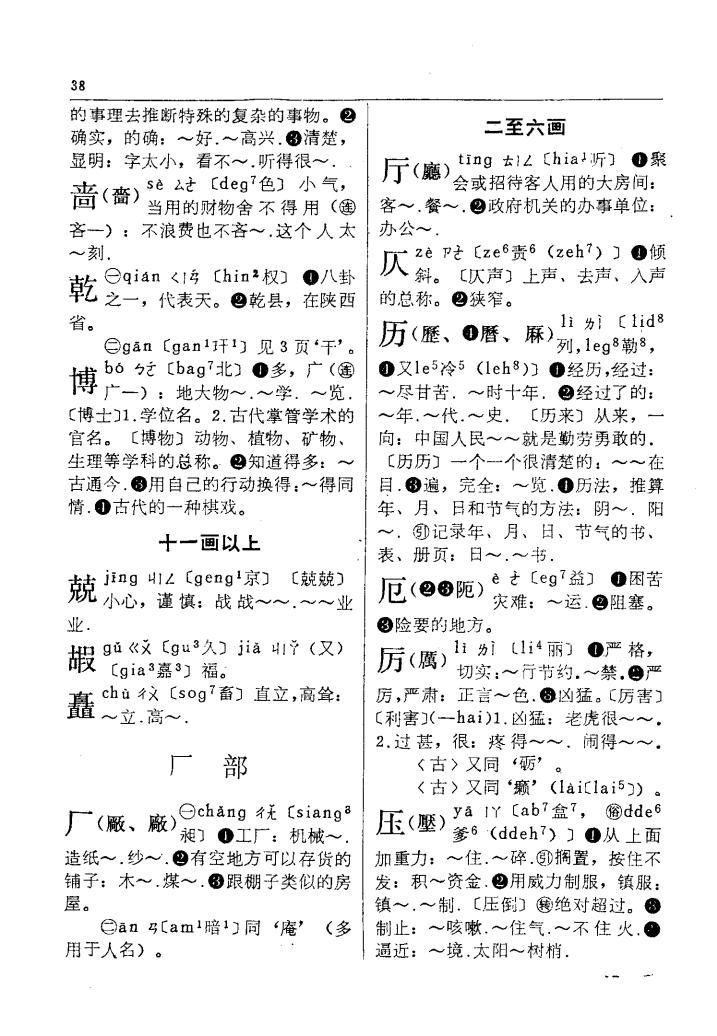 38
的事理去推断特殊的复杂的事物。❷
确实，的确：～好.～高兴.❸清楚，
显明：字太小，看不～.听得很～.
啬(嗇) sè ㄙㄜˋ〔deg⁷色〕小气，
当用的财物舍不得用（㊣
吝—）：不浪费也不吝～.这个人太
～刻.
乾 ㊀qián ㄑㄧㄢˊ〔hin²权〕❶八卦
之一，代表天。❷乾县，在陕西
省。
㊁gān〔gan¹玕¹〕见3页‘干’。
博 bó ㄅㄛˊ〔bag⁷北〕❶多，广（
广—）：地大物～.～学.～览.
〔博士〕1.学位名。2.古代掌管学术的
官名。〔博物〕动物、植物、矿物、
生理等学科的总称。❷知道得多：～
古通今.❸用自己的行动换得：～得同
情.❹古代的一种棋戏。
十一画以上
兢 jīng ㄐㄧㄥ〔geng¹京〕〔兢兢〕
小心，谨慎：战战～～.～～业
业.
嘏 gǔ ㄍㄨˇ〔gu³久〕jiǎ ㄐㄧㄚˇ（又）
〔gia³嘉³〕福。
矗 chù ㄔㄨˋ〔sog⁷畜〕直立，高耸：
～立.高～.
厂 部
厂(厰、廠) ㊀chǎng ㄔㄤˇ〔siang³
昶〕❶工厂：机械～.
造纸～.纱～.❷有空地方可以存货的
铺子：木～.煤～.❸跟棚子类似的房
屋。
㊁ān ㄢ〔am¹暗¹〕同‘庵’（多
用于人名）。
二至六画
厅(廳) tīng ㄊㄧㄥ〔hia¹听〕❶聚
会或招待客人用的大房间：
客～.餐～.❷政府机关的办事单位：
办公～.
仄 zè ㄗㄜˋ〔ze⁶责⁶（zeh⁷）〕❶倾
斜。〔仄声〕上声、去声、入声
的总称。❷狭窄。
历(歷、❹曆、厤) lì ㄌㄧˋ〔lid⁸
列，leg⁸勒⁸，
❶又le⁵冷⁵（leh⁸）〕❶经历，经过：
～尽甘苦.～时十年.❷经过了的：
～年.～代.～史.〔历来〕从来，一
向：中国人民～～就是勤劳勇敢的.
〔历历〕一个一个很清楚的：～～在
目.❸遍，完全：～览.❹历法，推算
年、月、日和节气的方法：阴～.阳
～.㊁记录年、月、日、节气的书、
表、册页：日～.～书.
厄(❷❸阨) è ㄜˋ〔eg⁷益〕❶困苦
灾难：～运.❷阻塞。
❸险要的地方。
厉(厲) lì ㄌㄧˋ〔li⁴丽〕❶严格，
切实：～行节约.～禁.❷严
厉，严肃：正言～色.❸凶猛。〔厉害〕
〔利害〕(—hai)1.凶猛：老虎很～～.
2.过甚，很：疼得～～.闹得～～.
〈古〉又同‘砺’。
〈古〉又同‘癞’（lài〔lai⁵〕）。
压(壓) yā ㄧㄚ〔ab⁷盒⁷，㊙dde⁶
爹⁶（ddeh⁷）〕❶从上面
加重力：～住.～碎.搁置，按住不
发：积～资金.❷用威力制服，镇服：
镇～.～制.〔压倒〕绝对超过。❸
制止：～咳嗽.～住气.～不住火.❹
逼近：～境.太阳～树梢.